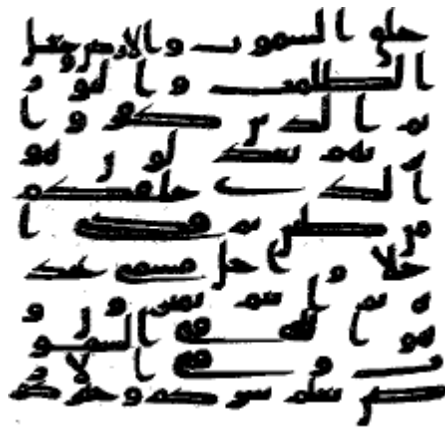 خلق السموت والارض وجعل
الظلمت والنور
ثم الذين كفروا
بربهم يعدلون هو
الذي خلقكم
من طين ثم قضى ا
جلا واجل مسمى عند
ه ثم انتم تمترون و
هو الله في السمو
ت وفي الار
ض يعلم سركم وجهرك